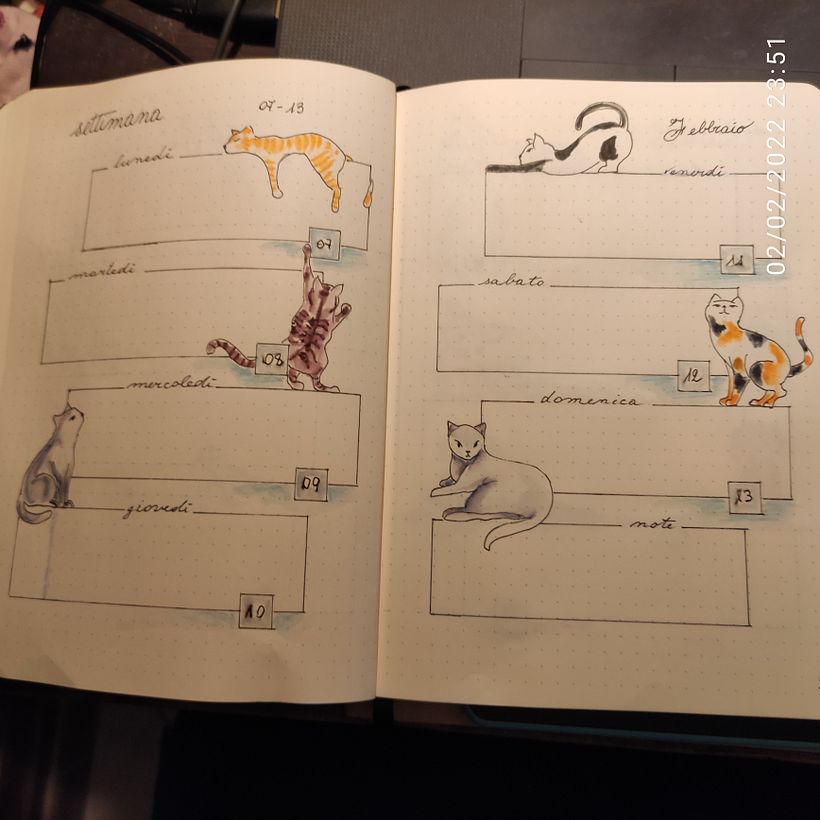 settimana
07-13
lunedì
07
martedì
08
mercoledì
09
giovedì
10
Febbraio
venerdì
11
sabato
12
domenica
13
note
02/02/2022 23:51